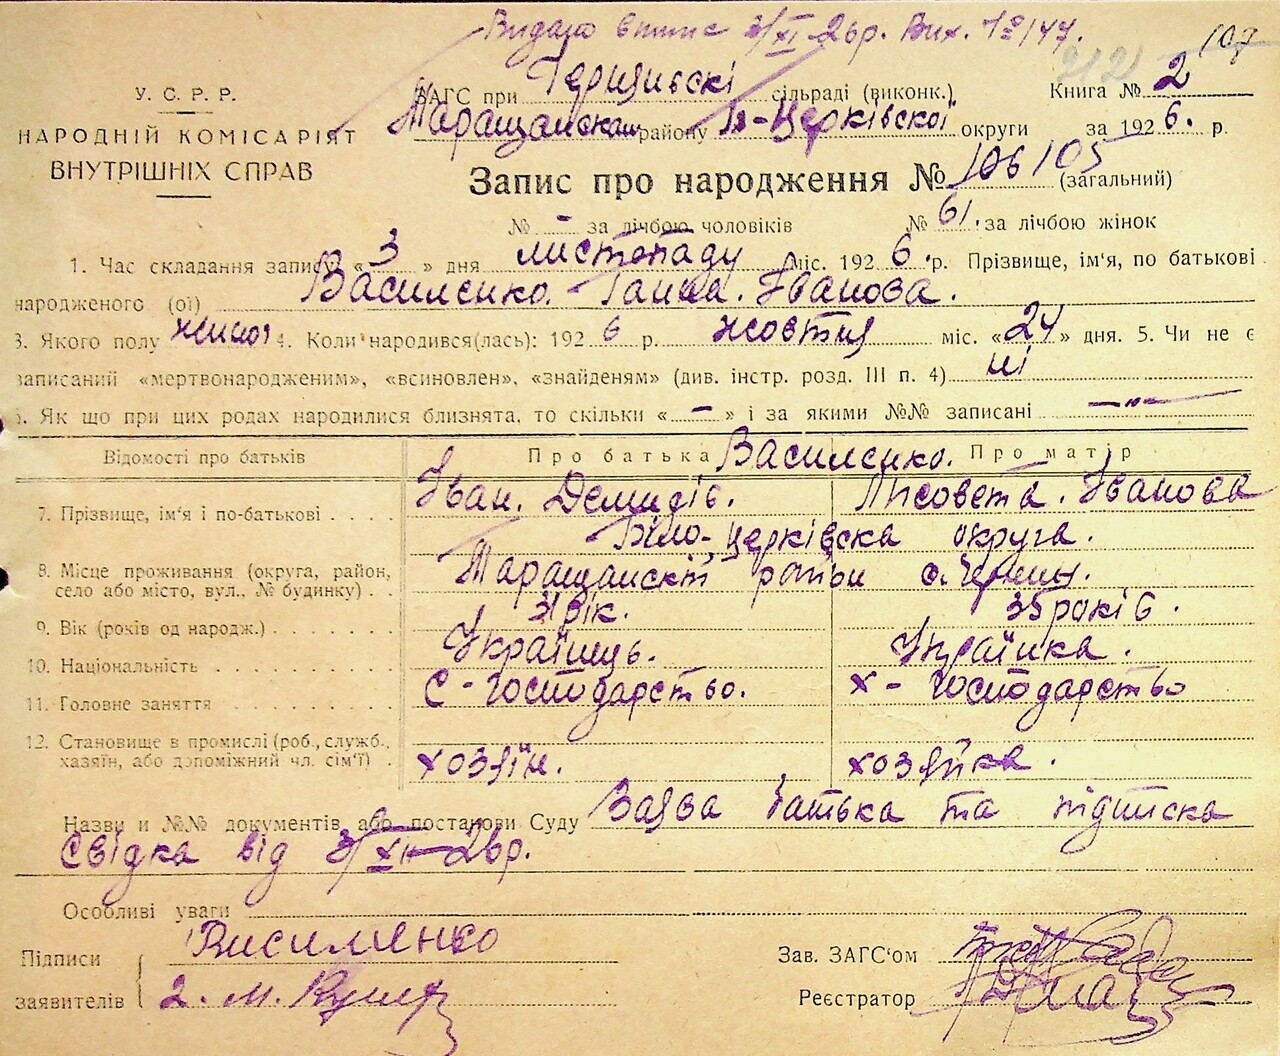 Видано витис 3/XI-26р. Вих. №147.
107
212
У. С. Р. Р.
НАРОДНІЙ КОМІСАРІЯТ
ВНУТРІШНІХ СПРАВ
ЗАГС при сільраді (виконк.) Книга № 2
Таращанском району Б-Церківскої округи за 192 6. р.
Запис про народження № 106 105 (загальний)
№ - за лічбою чоловіків № 61. за лічбою жінок
1. Час складання запису « 3 » дня листопаду міс. 192 6. р. Прізвище, ім'я, по батькові
народженого (ої) Василенко. - Ганна. Іванова.
3. Якого полу жіноч 4. Коли народився(лась): 192 6 р. жовтня міс. « 24 » дня. 5. Чи не є
записаний «мертвонародженим», «всиновлен», «знайденям» (див. інстр. розд. III п. 4) ні
6. Як що при цих родах народилися близнята, то скільки « - » і за якими №№ записані -„-
Відомості про батьків Про батька Василенко. Про матір
7. Прізвище, ім'я і по-батькові Іван. Демидів. Лисовета. Іванова
Біло-Церківска округа.
8. Місце проживання (округа, район, село або місто, вул., № будинку) Таращанскій с.
9. Вік (років од народж.) 31 рік. 35 років.
10. Національність Українець. Українка.
11. Головне заняття С-господарство. х-господарство
12. Становище в промислі (роб., служб., хазяїн, або допоміжний чл. сім'ї) хозяїн. хозяйка.
Назви и №№ документів або постанови Суду Заява батька та підписка
свідка від 3/XI-26р.
Особливі уваги
Підписи заявителів
Висиленко
2. М.
Зав. ЗАГС'ом
Реєстратор